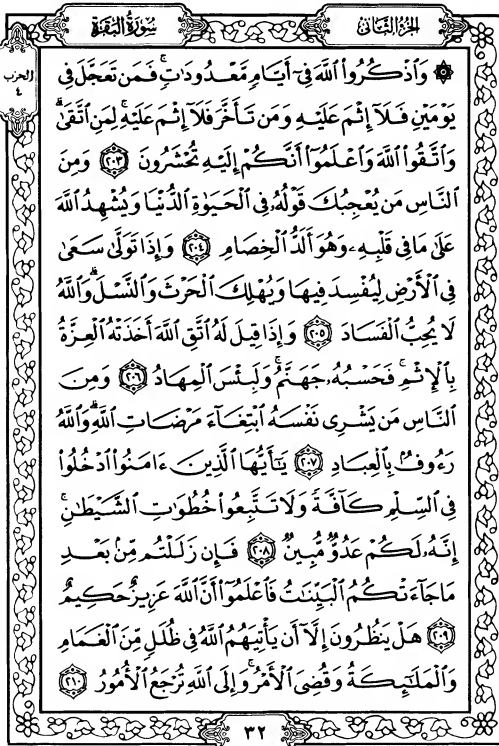 سُورَةُ البَقَرَةِ
الجُزءُ الثَّانِى
الحزب
٤
۞ وَٱذْكُرُوا۟ ٱللَّهَ فِىٓ أَيَّامٍ مَّعْدُودَٰتٍ ۚ فَمَن تَعَجَّلَ فِى
يَوْمَيْنِ فَلَآ إِثْمَ عَلَيْهِ وَمَن تَأَخَّرَ فَلَآ إِثْمَ عَلَيْهِ ۚ لِمَنِ ٱتَّقَىٰ ۗ
وَٱتَّقُوا۟ ٱللَّهَ وَٱعْلَمُوٓا۟ أَنَّكُمْ إِلَيْهِ تُحْشَرُونَ ٢٠٣ وَمِنَ
ٱلنَّاسِ مَن يُعْجِبُكَ قَوْلُهُۥ فِى ٱلْحَيَوٰةِ ٱلدُّنْيَا وَيُشْهِدُ ٱللَّهَ
عَلَىٰ مَا فِى قَلْبِهِۦ وَهُوَ أَلَدُّ ٱلْخِصَامِ ٢٠٤ وَإِذَا تَوَلَّىٰ سَعَىٰ
فِى ٱلْأَرْضِ لِيُفْسِدَ فِيهَا وَيُهْلِكَ ٱلْحَرْثَ وَٱلنَّسْلَ ۗ وَٱللَّهُ
لَا يُحِبُّ ٱلْفَسَادَ ٢٠٥ وَإِذَا قِيلَ لَهُ ٱتَّقِ ٱللَّهَ أَخَذَتْهُ ٱلْعِزَّةُ
بِٱلْإِثْمِ ۚ فَحَسْبُهُۥ جَهَنَّمُ ۚ وَلَبِئْسَ ٱلْمِهَادُ ٢٠٦ وَمِنَ
ٱلنَّاسِ مَن يَشْرِى نَفْسَهُ ٱبْتِغَآءَ مَرْضَاتِ ٱللَّهِ ۗ وَٱللَّهُ
رَءُوفٌۢ بِٱلْعِبَادِ ٢٠٧ يَٰٓأَيُّهَا ٱلَّذِينَ ءَامَنُوا۟ ٱدْخُلُوا۟
فِى ٱلسِّلْمِ كَآفَّةً وَلَا تَتَّبِعُوا۟ خُطُوَٰتِ ٱلشَّيْطَٰنِ ۚ
إِنَّهُۥ لَكُمْ عَدُوٌّ مُّبِينٌ ٢٠٨ فَإِن زَلَلْتُم مِّنۢ بَعْدِ
مَا جَآءَتْكُمُ ٱلْبَيِّنَٰتُ فَٱعْلَمُوٓا۟ أَنَّ ٱللَّهَ عَزِيزٌ حَكِيمٌ
٢٠٩ هَلْ يَنظُرُونَ إِلَّآ أَن يَأْتِيَهُمُ ٱللَّهُ فِى ظُلَلٍ مِّنَ ٱلْغَمَامِ
وَٱلْمَلَٰٓئِكَةُ وَقُضِىَ ٱلْأَمْرُ ۚ وَإِلَى ٱللَّهِ تُرْجَعُ ٱلْأُمُورُ ٢١٠
٣٢